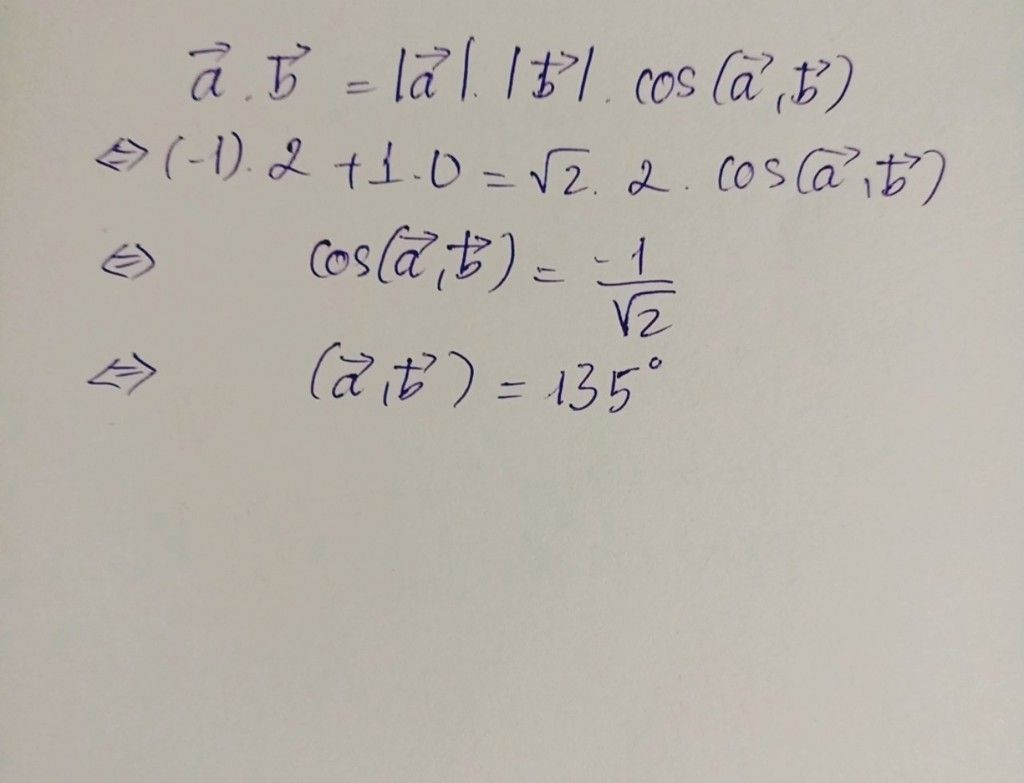 $\vec{a} . \vec{b} = |\vec{a}| . |\vec{b}| . \cos(\vec{a}, \vec{b})$
$\Leftrightarrow (-1) . 2 + 1 . 0 = \sqrt{2} . 2 . \cos(\vec{a}, \vec{b})$
$\Leftrightarrow \cos(\vec{a}, \vec{b}) = \frac{-1}{\sqrt{2}}$
$\Leftrightarrow (\vec{a}, \vec{b}) = 135^\circ$